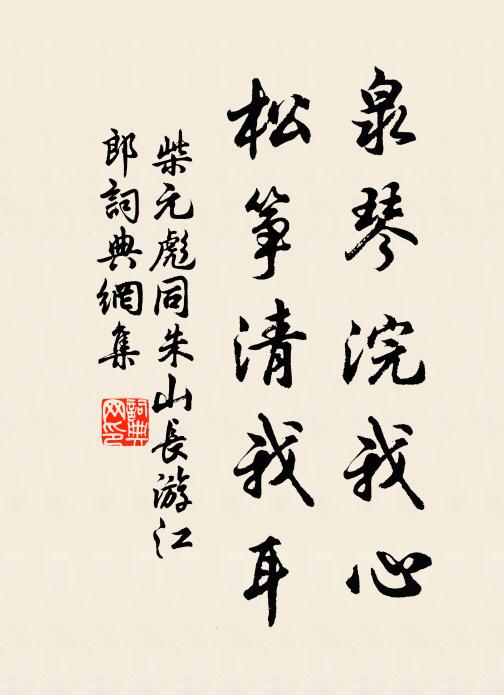 泉琴浣我心
松筝清我耳
柴元彪同朱山長游江
郎詞典網集
詞典网印